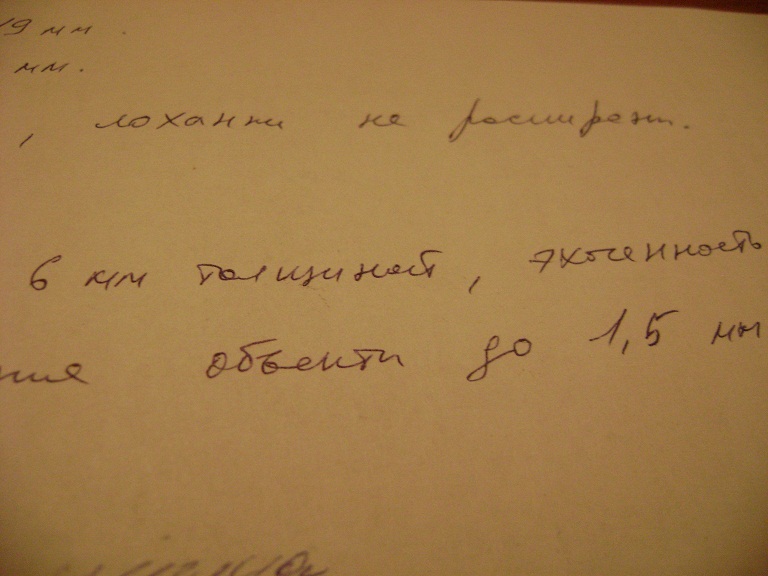 19 мм.
мм.
, лоханки не расширены.
6 мм толщиной, эхогенность
объекты до 1,5 мм